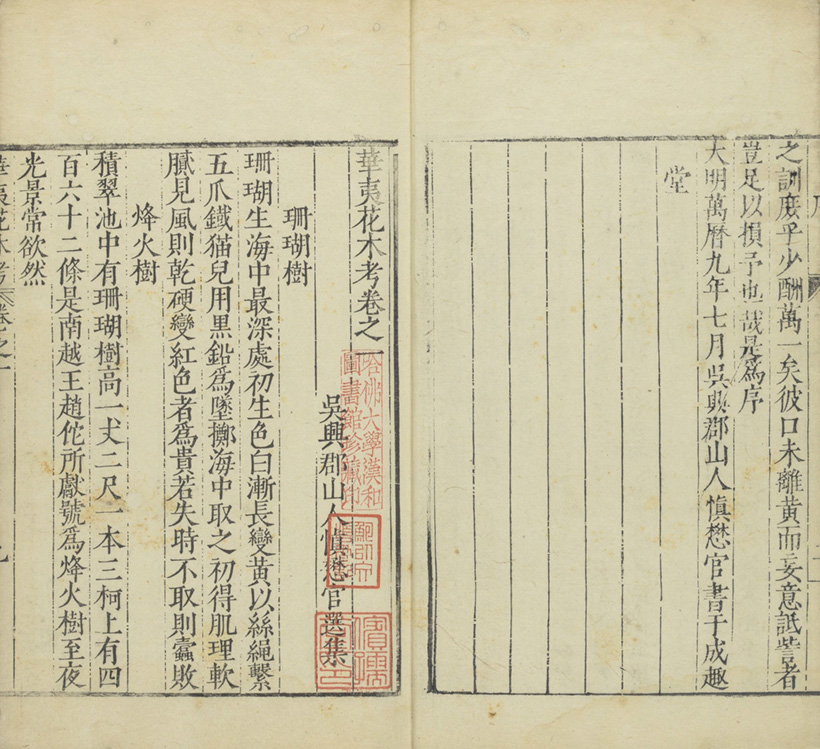 之訓庻乎少酬萬一矣彼口未離黃而妄意詆訾者
豈足以損予也哉是爲序
大明萬曆九年七月吳興郡山人慎懋官書于成趣
堂
華夷花木考卷之一
吳興郡山人慎懋官選集
哈佛大學漢和
圖書館珍藏印
珊瑚樹
珊瑚生海中最深處初生色白漸長變黃以絲繩繫
五爪鐵猫兒用黑鉛爲墜擲海中取之初得肌理軟
膩見風則乾硬變紅色者爲貴若失時不取則蠹敗
烽火樹
積翠池中有珊瑚樹高一丈二尺一本三柯上有四
百六十二條是南越王趙佗所獻號爲烽火樹至夜
光景常欲然
華夷花木考 卷之一